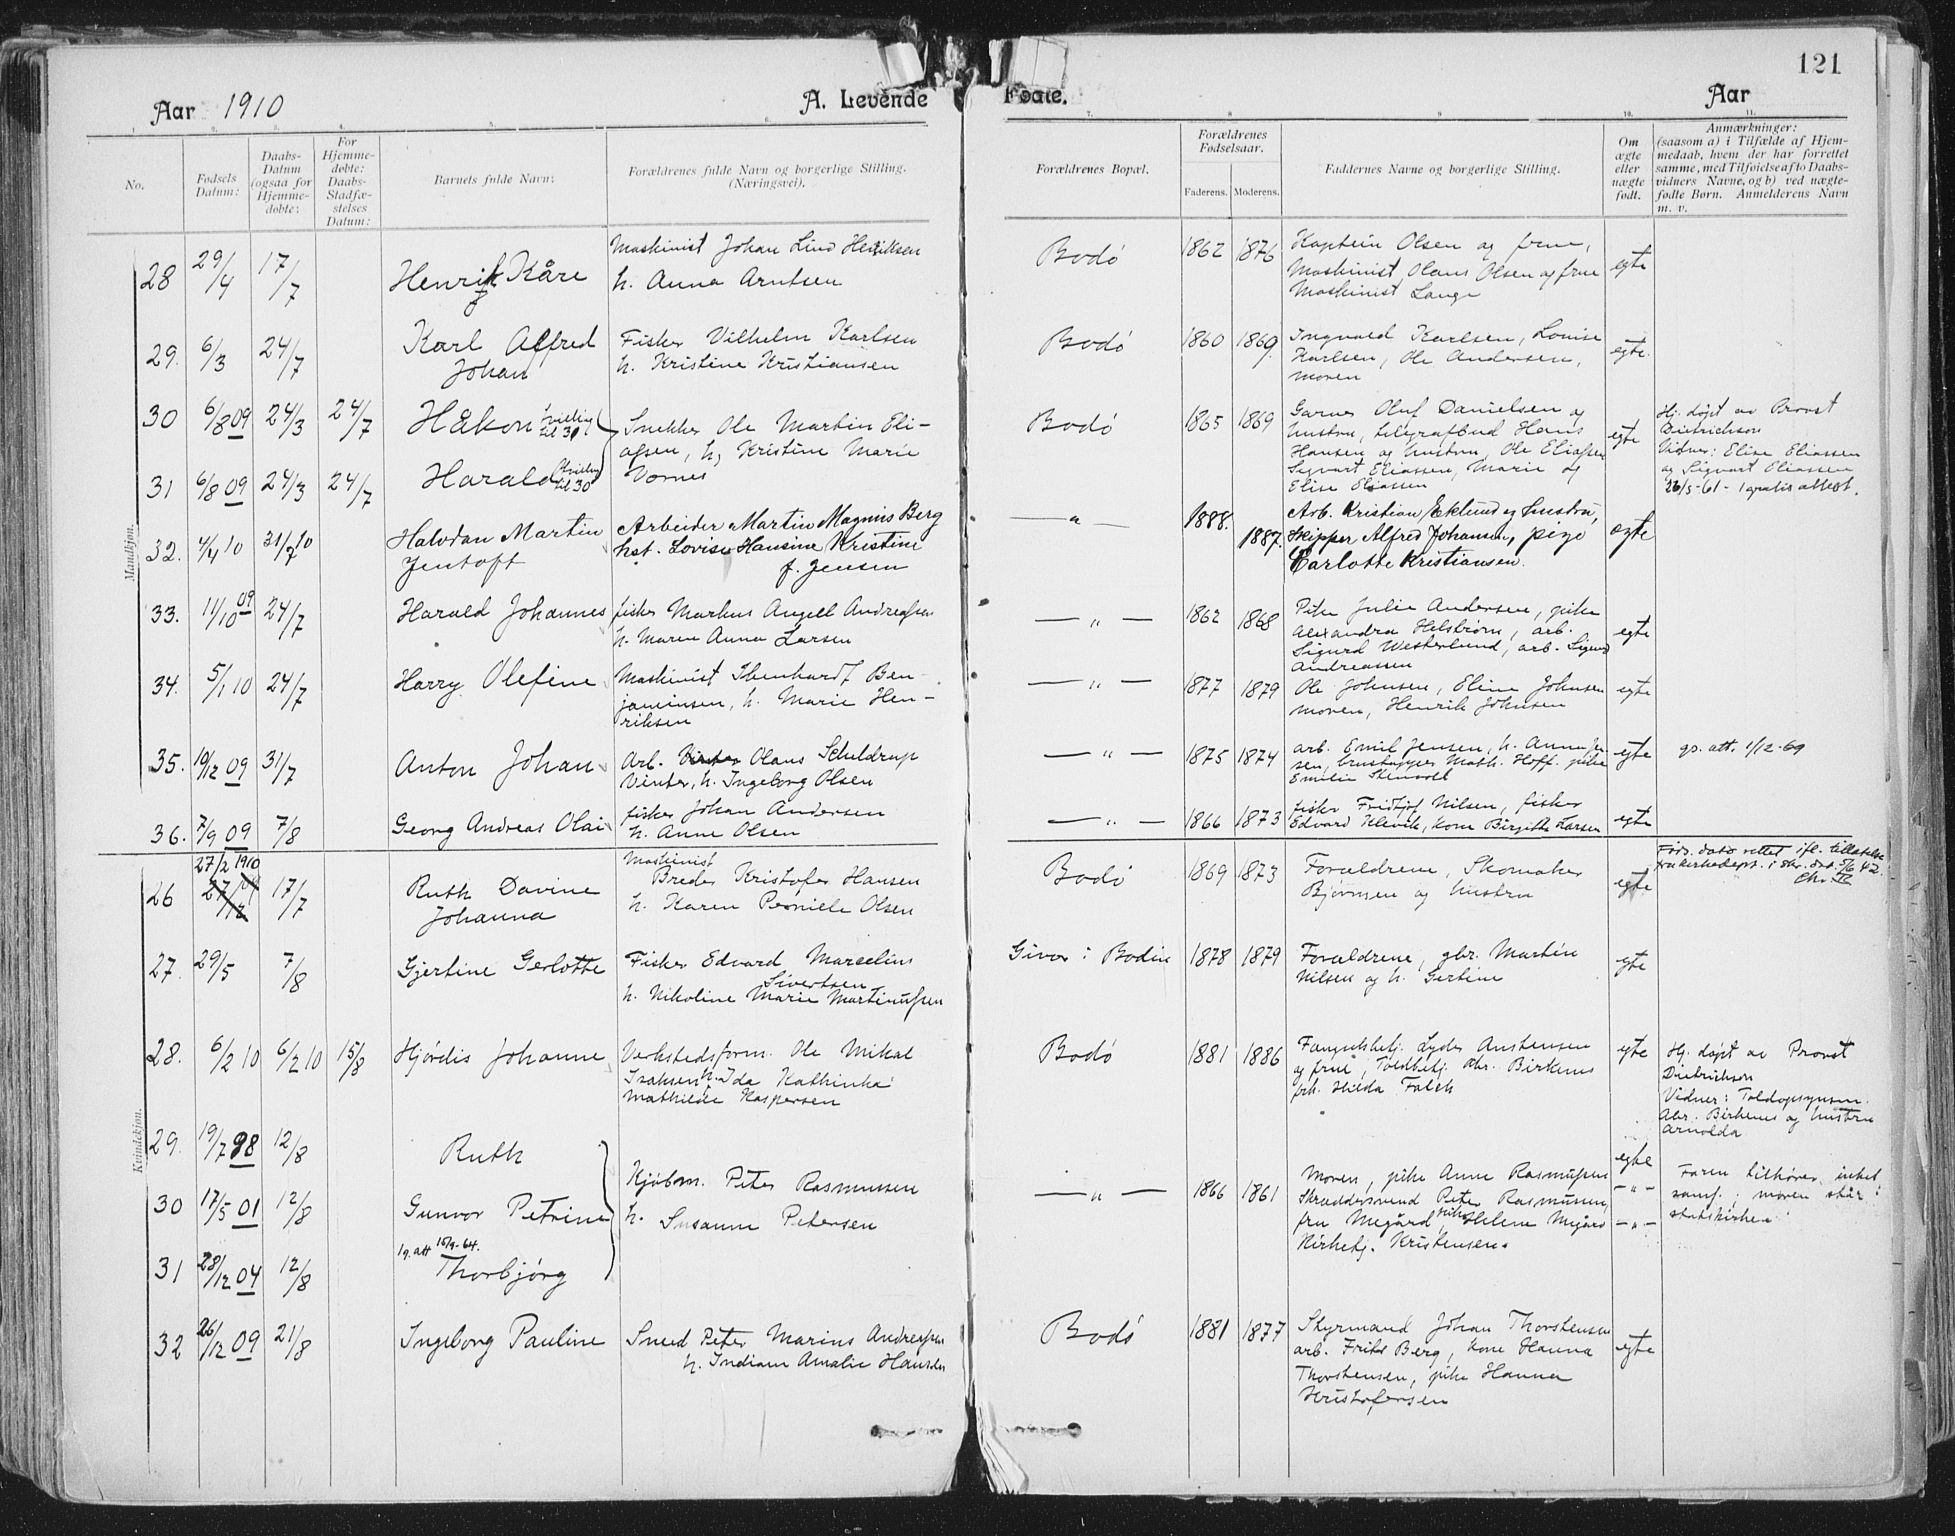 121
Aar 1910 A. Levende Fødte. Aar
1. 2. 3. 4. 5. 6. 7. 8 9 10. 11.
No.
Fødsels Datum:
Daabs-Datum (ogsaa for Hjemme-døbte:
For Hjemme-døbte: Daabs-Stadfæ-stelses Datum:
Barnets fulde Navn:
Forældrenes fulde Navn og borgerlige Stilling. (Næringsvei).
Forældrenes Bopæl.
Forældrenes Fødselsaar.
Faderens. Moderens.
Faddernes Navne og borgerlige Stilling.
Om ægte eller nægte født.
Anmærkninger: (saasom a) i Tilfælde af Hjemmedaab, hvem der har forrettet samme, med Tilføielse af to Daabsvidners Navne, og b) ved nægtefødte Børn. Anmelderens Navn m. v.
Mandkjøn.
28 29/4 17/7 Henrik Kåre
Maskinist Johan Lind Henriksen
h. Anna Arntsen
Bodø 1862 1876
Kaptein Olsen og frue,
Maskinist Olaus Olsen og frue
Maskinist Lange
egte
29. 6/3 24/7 Karl Alfred
Johan
Fisker Vilhelm Karlsen
h. Kristine Kristiansen
Bodø 1860 1869
Ingvald Karlsen, Louise
Karlsen, Ole Andersen,
moren
egte
30 6/8 09 24/3 24/7 Håkon tvilling til 31
Snekker Ole Martin Eli-
assen, h. Kristine Marie
Vornes
Bodø 1865 1869
Garver Oluf Danielsen og
hustru, telegrafbud Hans
Hansen og hustru, Ole Eliassen
Sigvart Eliassen, Marie og
Elise Eliassen
egte
Hj. døpt av Provst
Dietrichson
Vidner: Elise Eliassen
og Sigvart Eliassen
26/5-61- 1 gratis attest.
31 6/8 09 24/3 24/7 Harald tvilling til 30
32. 4/4 10 31/7 10 Halvdan Martin
Jentoft
Arbeider Martin Magnus Berg
hst. Lovise Hansine Kristine
f. Jensen
— " — 1888. 1887.
Arb. Kristian Eklund og hustru,
Skipper Alfred Johansen, pige
Carlotte Kristiansen.
egte
33. 11/10 09 24/7 Harald Johannes
fisker Markus Angell Andreassen
h. Maren Anna Larsen
— " — 1862 1868
Pike Julie Andersen, pike
Alexandra Helstrøm, arb.
Sigurd Westerlund, arb. Sigurd
Andreassen
egte
34. 5/1 10 24/7 Harry Olefine
Maskinist Ibenhardt Ben-
jaminsen, h. Marie Hen-
riksen
— " — 1877 1879
Ole Johnsen, Eline Johnsen
moren, Henrik Johnsen
egte
35. 19/12 09 31/7 Anton Johan
Arb. Olaus Schuldrup
Vinter, h. Ingeborg Olsen
— " — 1875 1874
arb. Emil Jensen, h. Anna Jen
sen, Math. Hoff. pike
Emilie
egte
gr. att. 1/12-69
36. 7/9 09 7/8 Georg Andreas Olai
fisker Johan Andersen
h. Anne Olsen
— " — 1866 1873
fisker Fridtjof Nilsen, fisker
Edvard Klevik, kone Birgitte Larsen
egte
Kvindekjøn.
26 27/2 1910 17/7 Ruth Davine
Johanna
Maskinist
Breder Kristofer Hansen
h. Karen Pernielle Olsen
Bodø 1869 1873
Forældrene, Skomaker
Bjørnsen og hustru
egte
Føds. dato rettet ifl. tillatelse
fra kirkedept. i skr. dat. 5/6 42.
27. 29/5 7/8 Gjertine Gerlotte
Fisker Edvard Marcelius
Sivertsen
h. Nikoline Marie Martinussen
Giver i Bodin 1878 1879
Forældrene, gbr. Martin
Nilsen og h. Gertine
egte
28. 6/2 10 6/2 10 15/8 Hjørdis Johanne
Verkstedsform. Ole Mikal
Isaksen h. Ida Kathinka
Mathilde Kaspersen
Bodø 1881 1886
Fangutbetj. Lyder Anstensen
og frue, Toldbetj. Abr. Birkenes
frk. Hilda Falch
egte
Hj. døpt av Provst
Dietrichson
Vidner: Toldopsynsm.
Abr. Birkenes og hustru
Arnolda
29. 19/7 98 12/8 Ruth
egte
30 17/5 01 12/8 Gunvor Petrine
Kjøbm. Peter Rasmussen
h. Susanne Petersen
— " — 1866 1861
Moren, pike Anne Rasmussen
Skræddersvend Peter Rasmussen,
fru Megård, pike Helene Megård
Kirkebtj. Kristensen.
— " —
— " —
Faren tilhører intet
samf.; moren står i
statskirken
1 g. att 15/9-64.
31 28/12 04 12/8 Thorbjørg
32 26/12 09 21/8 Ingeborg Pauline
Smed Peter Marius Andreassen
h. Indiane Amalie Hansen
Bodø 1881 1877
Styrmand Johan Thorstensen
arb. Frits Berg, kone Hanna
Thorstensen, pike Hanna
Kristofersen
egte